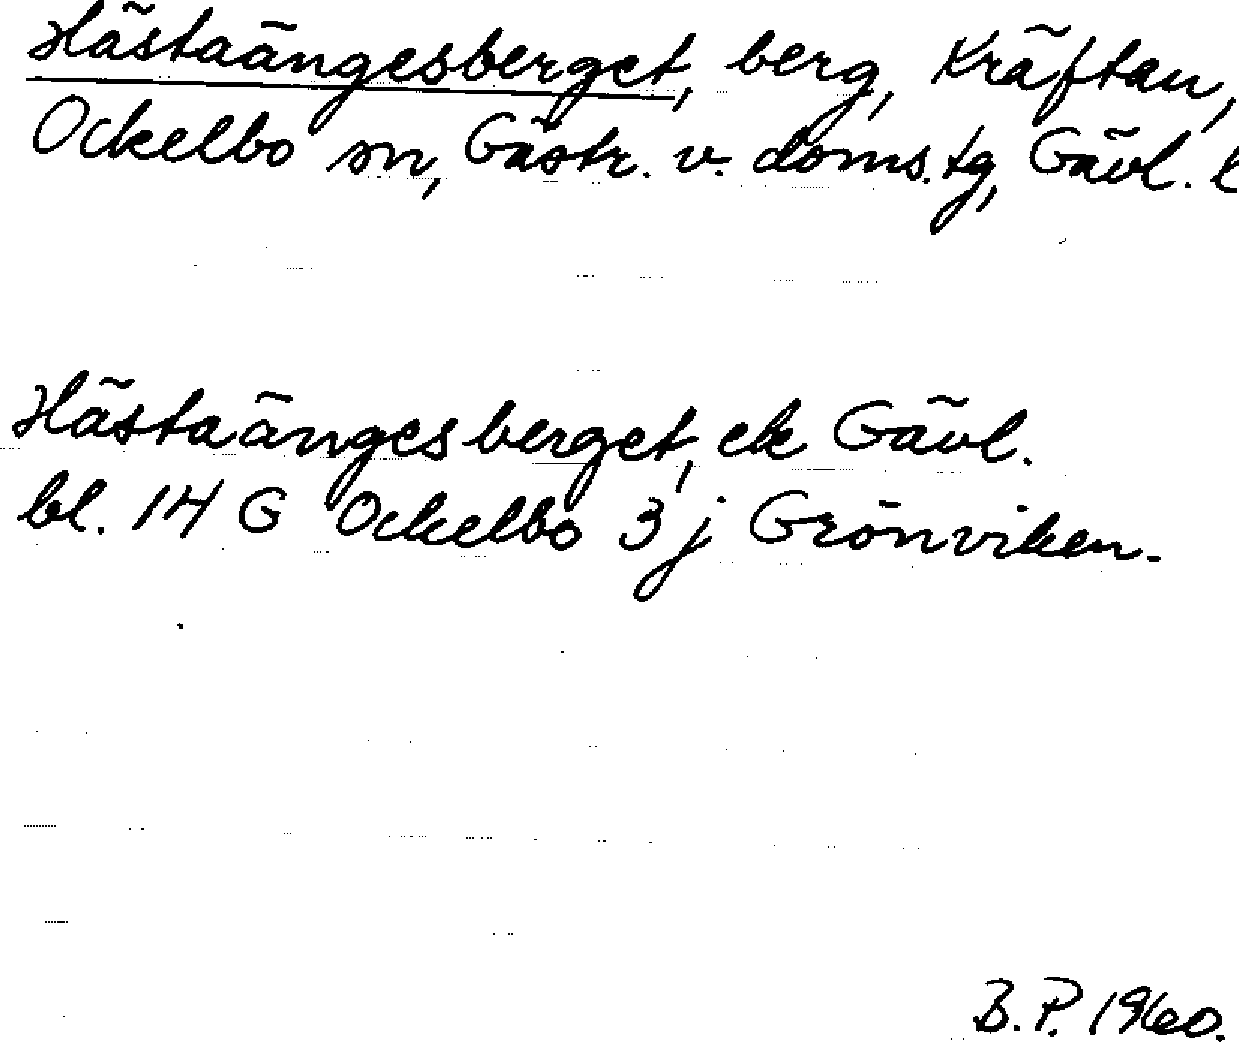 Hästaängesberget, berg, Kräftan,
Ockelbo sn, Gästr. v. doms.tg, Gävl. l
Hästaängesberget, ek Gävl.
bl. 14 G Ockelbo 3 j Grönviken.
B.P. 1960.